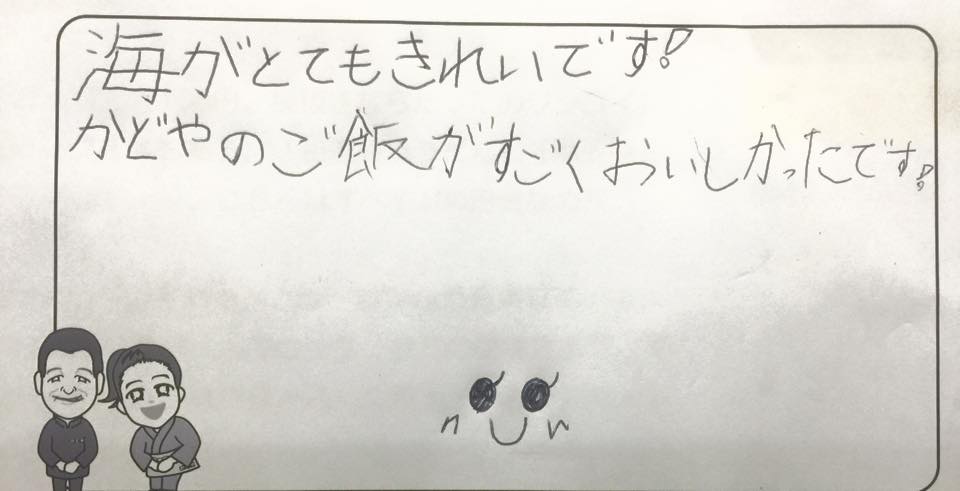 海がとてもきれいです!
かどやのご飯がすごくおいしかったです!